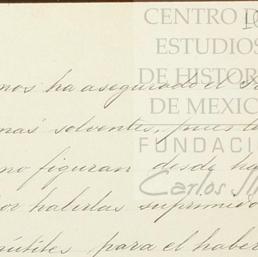 CENTRO D
ESTUDIOS
DE HISTOR
DE MEXIC
FUNDACI
Carlos Sl
nos ha asegurado el
mas solventes, pues
no figuran desde ha
or haberlas suprimido
útiles para el haber